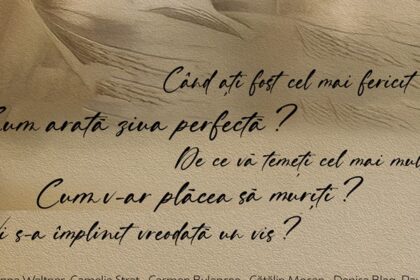 Când ați fost cel mai fericit
Cum arată ziua perfectă ?
De ce vă temeți cel mai mul
Cum v-ar plăcea să muriți ?
i s-a împlinit vreodată un vis ?
nna Waltner, Camelia Strat, Carmen Bulancea, Cătălin Mocan, Denisa Blag, Da